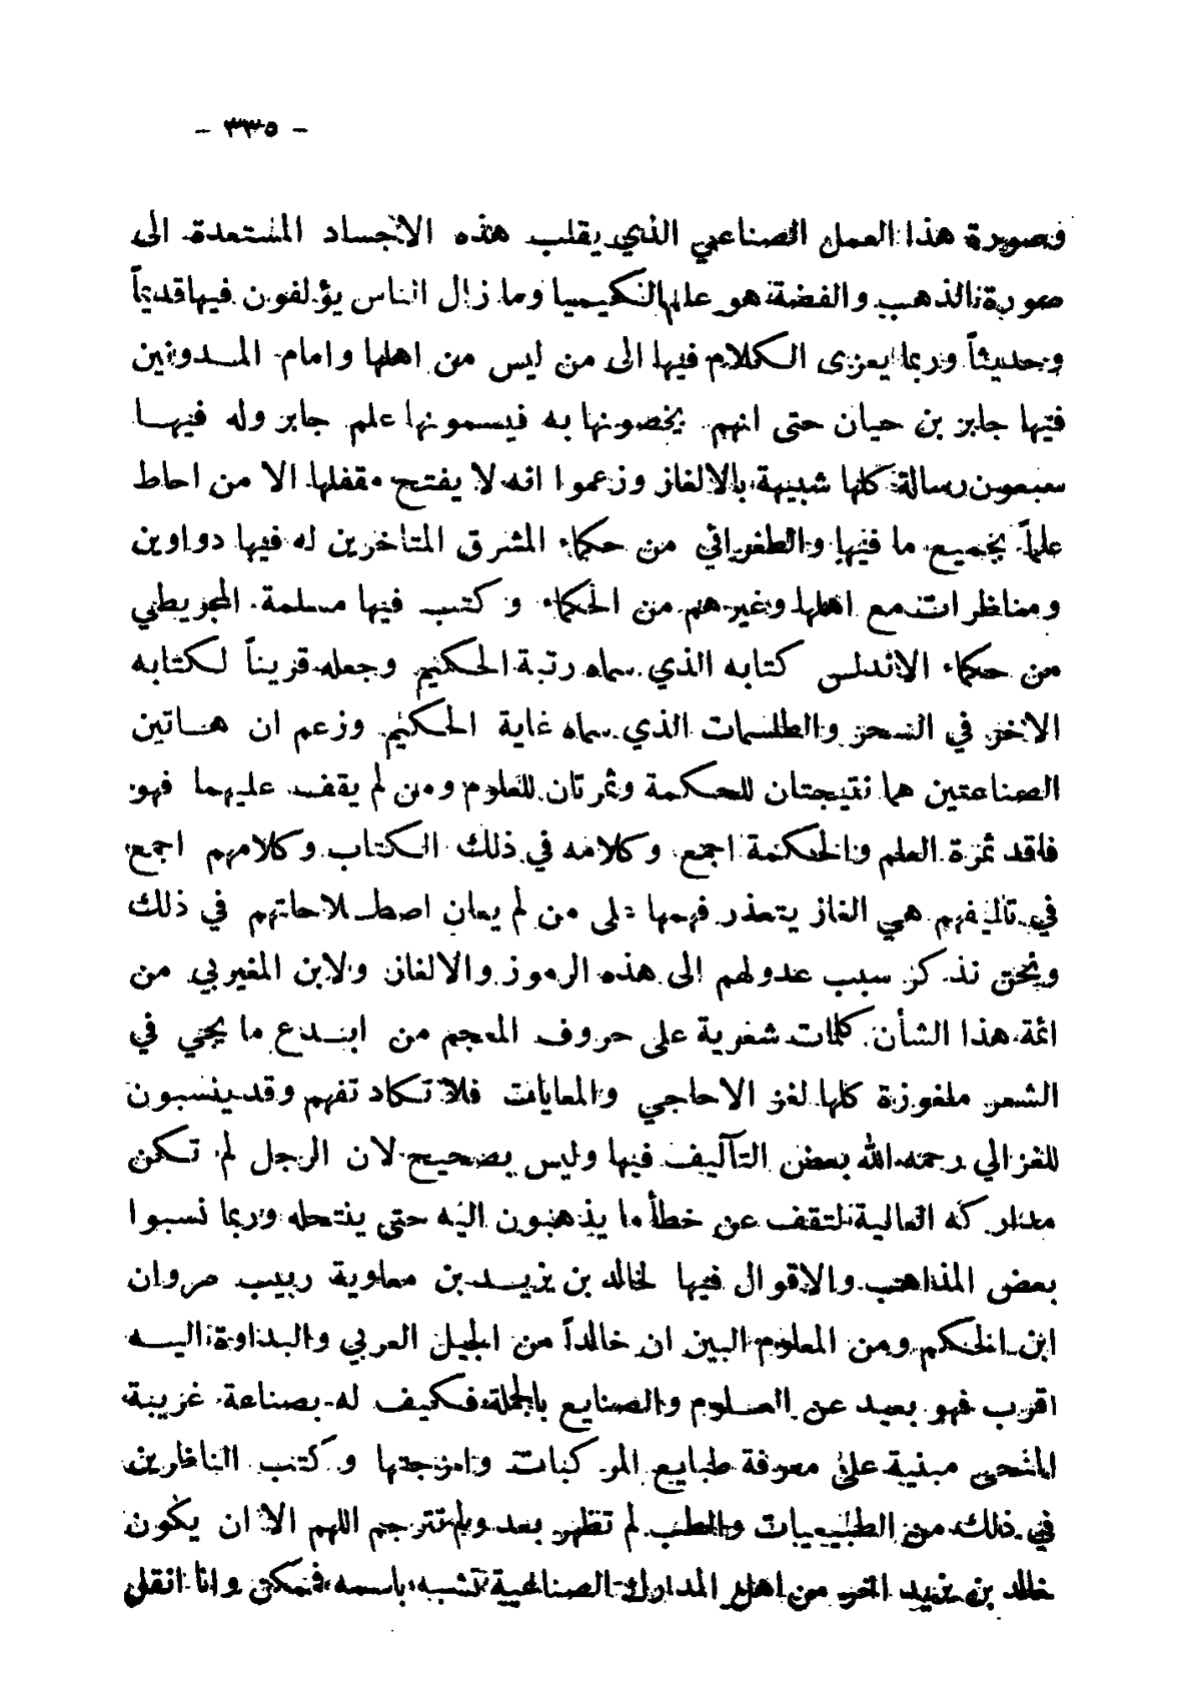 - ٣٣٥ -
وصورة هذا العمل الصناعي الذي يقلب هذه الاجساد المستعدة الى
صورة الذهب والفضة هو علم الكيميا وما زال الناس يؤلفون فيها قديماً
وحديثاً وربما يعزى الكلام فيها الى من ليس من اهلها وامام المــدونين
فيها جابر بن حيان حتى انهم يخصونها به فيسمونها علم جابر وله فيهــا
سبعون رسالة كلها شبيهة بالالغاز وزعموا انه لا يفتح مقفلها الا من احاط
علماً بجميع ما فيها والطغرائي من حكماء المشرق المتأخرين له فيها دواوين
ومناظرات مع اهلها وغيرهم من الحكماء وكتب فيها مسلمة المجريطي
من حكماء الاندلس كتابه الذي سماه رتبة الحكيم وجعله قريناً لكتابه
الاخر في السحر والطلسمات الذي سماه غاية الحكيم وزعم ان هــاتين
الصناعتين هما نتيجتان للحكمة وثمرتان للعلوم ومن لم يقف عليهما فهو
فاقد ثمرة العلم والحكمة اجمع وكلامه في ذلك الكتاب وكلامهم اجمع
في تاليفهم هي الغاز يتعذر فهمها على من لم يعان اصطــلاحاتهم في ذلك
ونحن نذكر سبب عدولهم الى هذه الرموز والالغاز ولابن المغيربي من
ائمة هذا الشأن كلمات شعرية على حروف المعجم من ابــدع ما يجي في
الشعر ملغوزة كلها لغز الاحاجي والمعايات فلا تكاد تفهم وقد ينسبون
للغزالي رحمه الله بعض التآليف فيها وليس بصحيح لان الرجل لم تكن
مداركه العالية لتقف عن خطأ ما يذهبون اليه حتى ينتحله وربما نسبوا
بعض المذاهب والاقوال فيها لخالد بن يزيــد بن معاوية ربيب مروان
ابن الحكم ومن المعلوم البين ان خالداً من الجيل العربي والبداوة اليــه
اقرب فهو بعيد عن العــلوم والصنايع بالجملة فكيف له بصناعة غريبة
المنحى مبنية على معرفة طبايع المركبات وامزجتها وكتب الناظرين
في ذلك من الطبيعيات والطب لم تظهر بعد ولم تترجم اللهم الا ان يكون
خالد بن يزيد اخر من اهل المدارك الصناعية تشبه باسمه فممكن وانا انقل